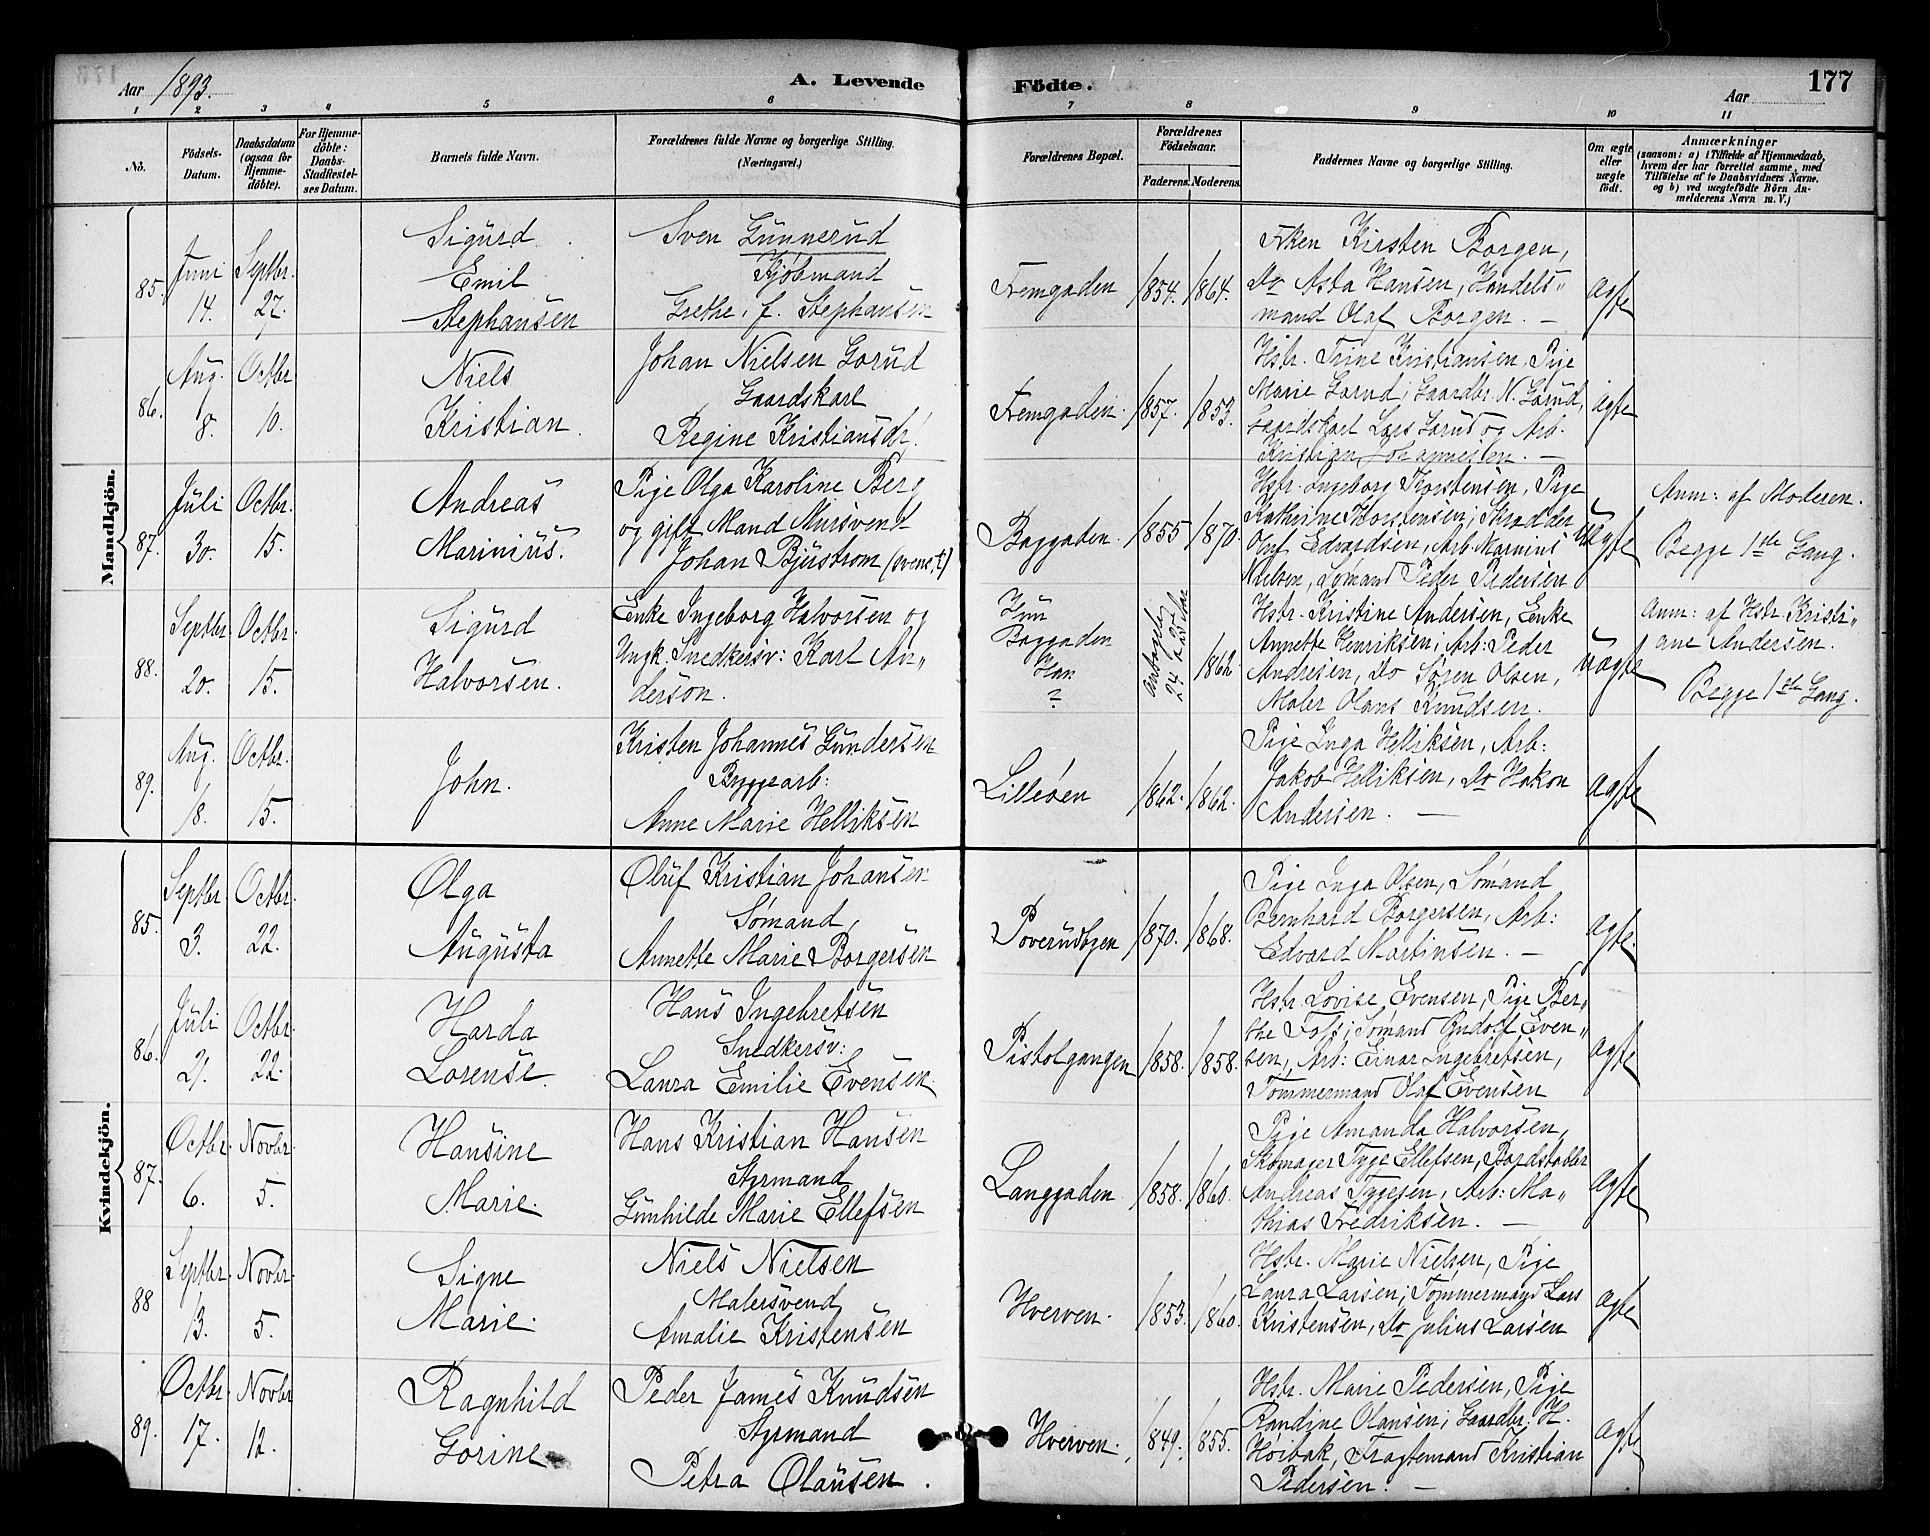 Aar 1893. A. Levende Födte. Aar 177
1 2 3 4 5 6 7 8 9 10 11
No.
Födsels-Datum.
Daabsdatum (ogsaa for Hjemmedöbte).
For Hjemmedöbte: Daabs-Stadfestelses Datum.
Barnets fulde Navn.
Forældrenes fulde Navne og borgerlige Stilling.
(Næringsvei.)
Forældrenes Bopæl.
Forældrenes Födselsaar.
Faderens. Moderens.
Faddernes Navne og borgerlige Stilling.
Om ægte eller uægte födt.
Anmærkninger
(saasom: a) i Tilfælde af Hjemmedaab,
hvem der har forrettet samme, med
Tilföielse af to Daabsvidners Navne.
og b) ved uægtefödte Börn An-
melderens Navn m. V.)
Mandkjön.
85. Juni 14. Septbr. 27.
Sigurd
Emil
Stephansen
Sven Gunnerud
Kjøbmand
Grethe, f. Stephansen
Fremgaden 1854. 1864.
Frken Kirsten Borgen,
Do Asta Hansen, Handels„
mand Olaf Borgen. —
ægte
86. Aug. 8. Octbr. 10.
Niels
Kristian
Johan Nielsen Gorud
Gaardskarl
Regine Kristiansdr.
Fremgaden. 1857. 1853.
Hstr. Trine Kristiansen, Pige
Marie Gorud, Gaardbr. N. Gorud,
Gaardskarl Lars Gorud og Arb.
Kristian Johannesen. —
ægte
87. Juli 30. Octbr. 15.
Andreas
Marinius.
Pige Olga Karoline Berg
og gift Mand Mursvend
Johan Bjurstrom (svensk)
Baggaden. 1855 1870.
Hstr. Ingeborg Thorstensen, Pige
Kathrine Thorstensen; Skrædder
Oluf Edvardsen, Arb. Marnius
Nielsen, Sømand Peder Pedersen
uægte
Anm: af Moderen.
Begge 1ste Gang.
88. Septbr. 20. Octbr. 15.
Sigurd
Halvorsen.
Enke Ingeborg Halvorsen og
Ungk. Snedkersv: Karl An„
derson.
Hun
Baggaden
Han
?
antagelig 24 a 25 Aar 1862.
Hstr. Kristine Andersen, Enke
Annette Henriksen; Arb: Peder
Andresen, Do Søren Olsen,
Maler Olans Knudsen.
uægte
Anm: af Hstr. Kristi„
ane Andersen.
Begge 1ste Gang.
89. Aug. 18. Octbr. 15.
John.
Kristen Johannes Gundersen
Byggearb:
Anne Marie Helliksen
Lilleøen 1862. 1862.
Pige Inga Helliksen, Arb:
Jakob Helliksen, Do Hakon
Andersen. —
ægte
Kvindekjön.
85. Septbr. 3. Octbr. 22.
Olga
Augusta
Oluf Kristian Johansen
Sømand,
Annette Marie Borgersen
Poverudbyen 1870. 1868.
Pige Inga Olsen, Sømand
Bernhard Borgersen, Arb:
Edvard Martinsen. —
ægte.
86. Juli 21. Octbr. 22.
Harda
Lorense
Hans Ingebretsen
Snedkersv:
Laura Emilie Evensen
Pistolgangen 1858. 1858.
Hstr. Lovise Evensen, Pige Ber„
the Fols; Sømand Rudolf Even„
sen, Arb: Einar Ingebretsen,
Tømmermand Olaf Evensen
ægte
87. Octbr. 6. Novbr 5.
Hansine
Marie.
Hans Kristian Hansen
Styrmand
Gunhilde Marie Ellefsen
Langgaden 1858. 1860.
Pige Amanda Halvorsen,
Skomager Tyge Ellefsen, Bordstabler
Andreas Tygesen, Arb: Ma„
thias Fredriksen. —
ægte
88 Septbr. 13. Novbr. 5.
Signe
Marie.
Niels Nielsen
Malersvend
Amalie Kristensen
Hverven. 1853. 1860.
Hstr. Marie Nielsen, Pige
Laura Larsen; Tømmermand Lars
Kristensen, Do Julius Larsen
ægte
89. Octbr. 17. Novbr 12.
Ragnhild
Gorine
Peder James Knudsen
Styrmand
Petra Olausen.
Hverven. 1849. 1855.
Hstr. Marie Pedersen, Pige
Randine Olansen; Gaardbr: H.
Høibak, Fragtemand Kristian
Pedersen. —
ægte